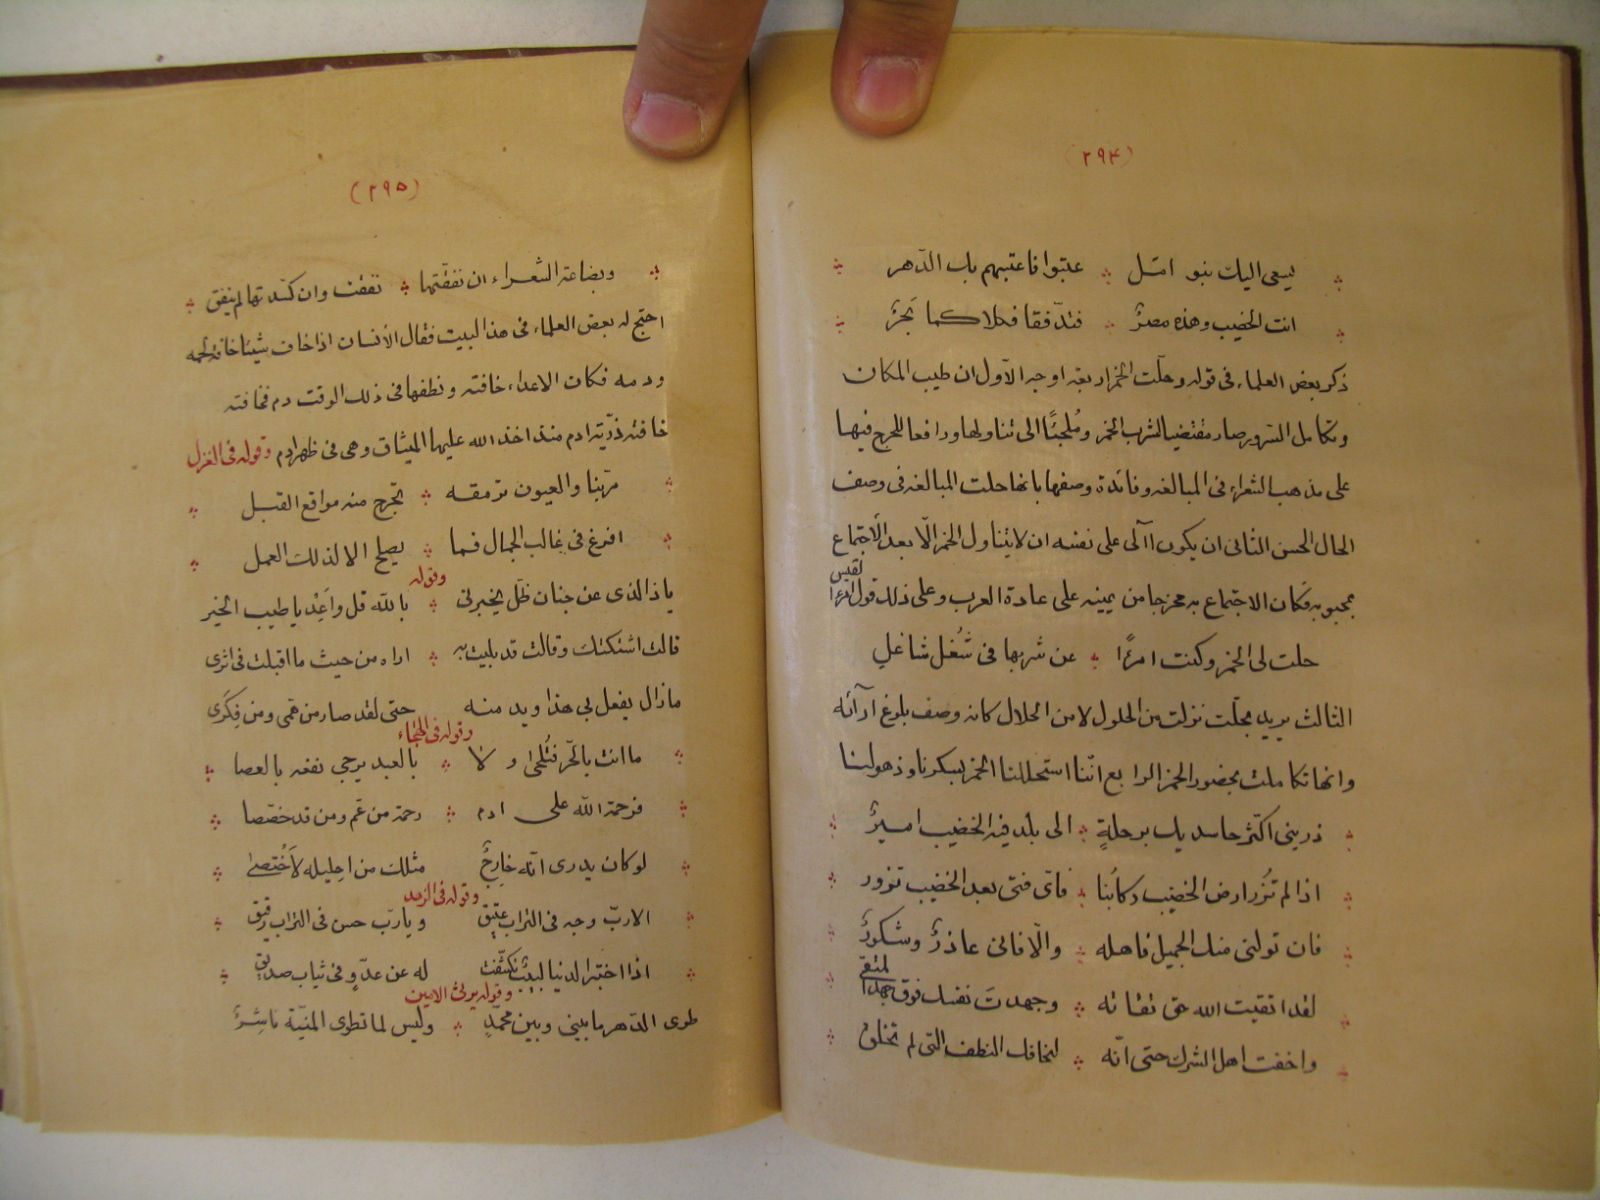 (٢٩٤)
يسعى اليك بنو امل ∴ عتبوا فاعتبهم بك الدّهر
انت الخضيب وهذه مصرٌ ∴ فتدفّقا فكلاكما بَحرٌ
ذكر بعض العلماء فى قوله وحلّت الخمر اربعة اوجه الاوّل ان طيب المكان
وتكامل السّرور صار مقتضيا لشرب الخمر ومُلجئًا الى تناولها ورافعا للحرج فيها
على مذهب الشعراء فى المبالغه وفائدة وصفها بانها حلت المبالغه فى وصف
الحال الحسن الثانى ان يكون آلى على نفسه ان لا يتناول الخمر الّا بعد الاجتماع
بمحبوبه فكان الاجتماع به مخرجا من يمينه على عادة العرب وعلى ذلك قول امرء القيس
حلت لى الخمر وكنت امرءًا ∴ عن شربها فى شُغل شاغلى
الثالث يريد بحلّت نزلت من الحلول لا من الحلال كانه وصف بلوغ ارآئه
وانها تكاملت بحضور الخمر الرابع انّنا استحللنا الخمر بسكرنا وذهولنا
ذرينى اكثّر حاسديك برحلةٍ ∴ الى بلد فيه الخضيب اميرٌ
اذا لم تزُر ارض الخضيب ركابُنا ∴ فاىّ فتى بعد الخضيب تزور
فان تولنى منك الجميل فاهله ∴ والّا فانى عاذرٌ وشكورٌ
لقد اتقيت الله حق تقاته ∴ وجهدتَ نفسك فوق جهد المتقى
واخفت اهل الشرك حتى انّه ∴ لتخافك النطف التى لم تخلق
(٢٩٥)
وبضاعة الشعراء ان نفقتّها ∴ نفقت وان كسّدتها لم ينفق
احتج له بعض العلماء فى هذا البيت فقال الأنسان اذا خاف شيئا خافه لحمه
ودمه فكان الاعداء خافته ونطفها فى ذلك الوقت دم فخافته
خافته ذرّية ادم منذ اخذ الله عليها الميثاق وهى فى ظهر ادم وقوله فى الغزل
مرّبنا والعيون ترمقه ∴ تجرح منه مواقع القبل
افرغ فى غالب الجمال فما ∴ يصلح الا لذلك العمل
وقوله
ياذا الذى عن جنان ظّل يخبرنى ∴ بالله قل واَعِدْ يا طيب الخبر
قالت اشتكتك وقالت قد بليت به ∴ اراه من حيث ما اقبلت فى اثرى
ما زال يفعل بى هذا ويدمنه حتى لقد صار من همى ومن فِكَرى
وقوله فى الهجاء
ما انت بالحّر فتُلحىٰ ولا ∴ بالعبد يرجى نفعه بالعصا
فرحمة الله على ادم ∴ رحمة من عّم ومن قد خصّصا
لو كان يدرى انّه خارِجٌ مثلك من احِليله لاَخْتصىٰ
وقوله فى الزهد
الا ربّ وجه فى التراب عتيق ويا ربّ حسن فى التراب رقيق
اذا اختبر الدنيا لبيبٌ تكشّفت له عن عدّوٍ فى ثياب صديق
وقوله يرثى الامين
طوى الدّهر ما بينى وبين محمّدٍ ∴ وليس لما تطوى المنيّة ناشِرٌ